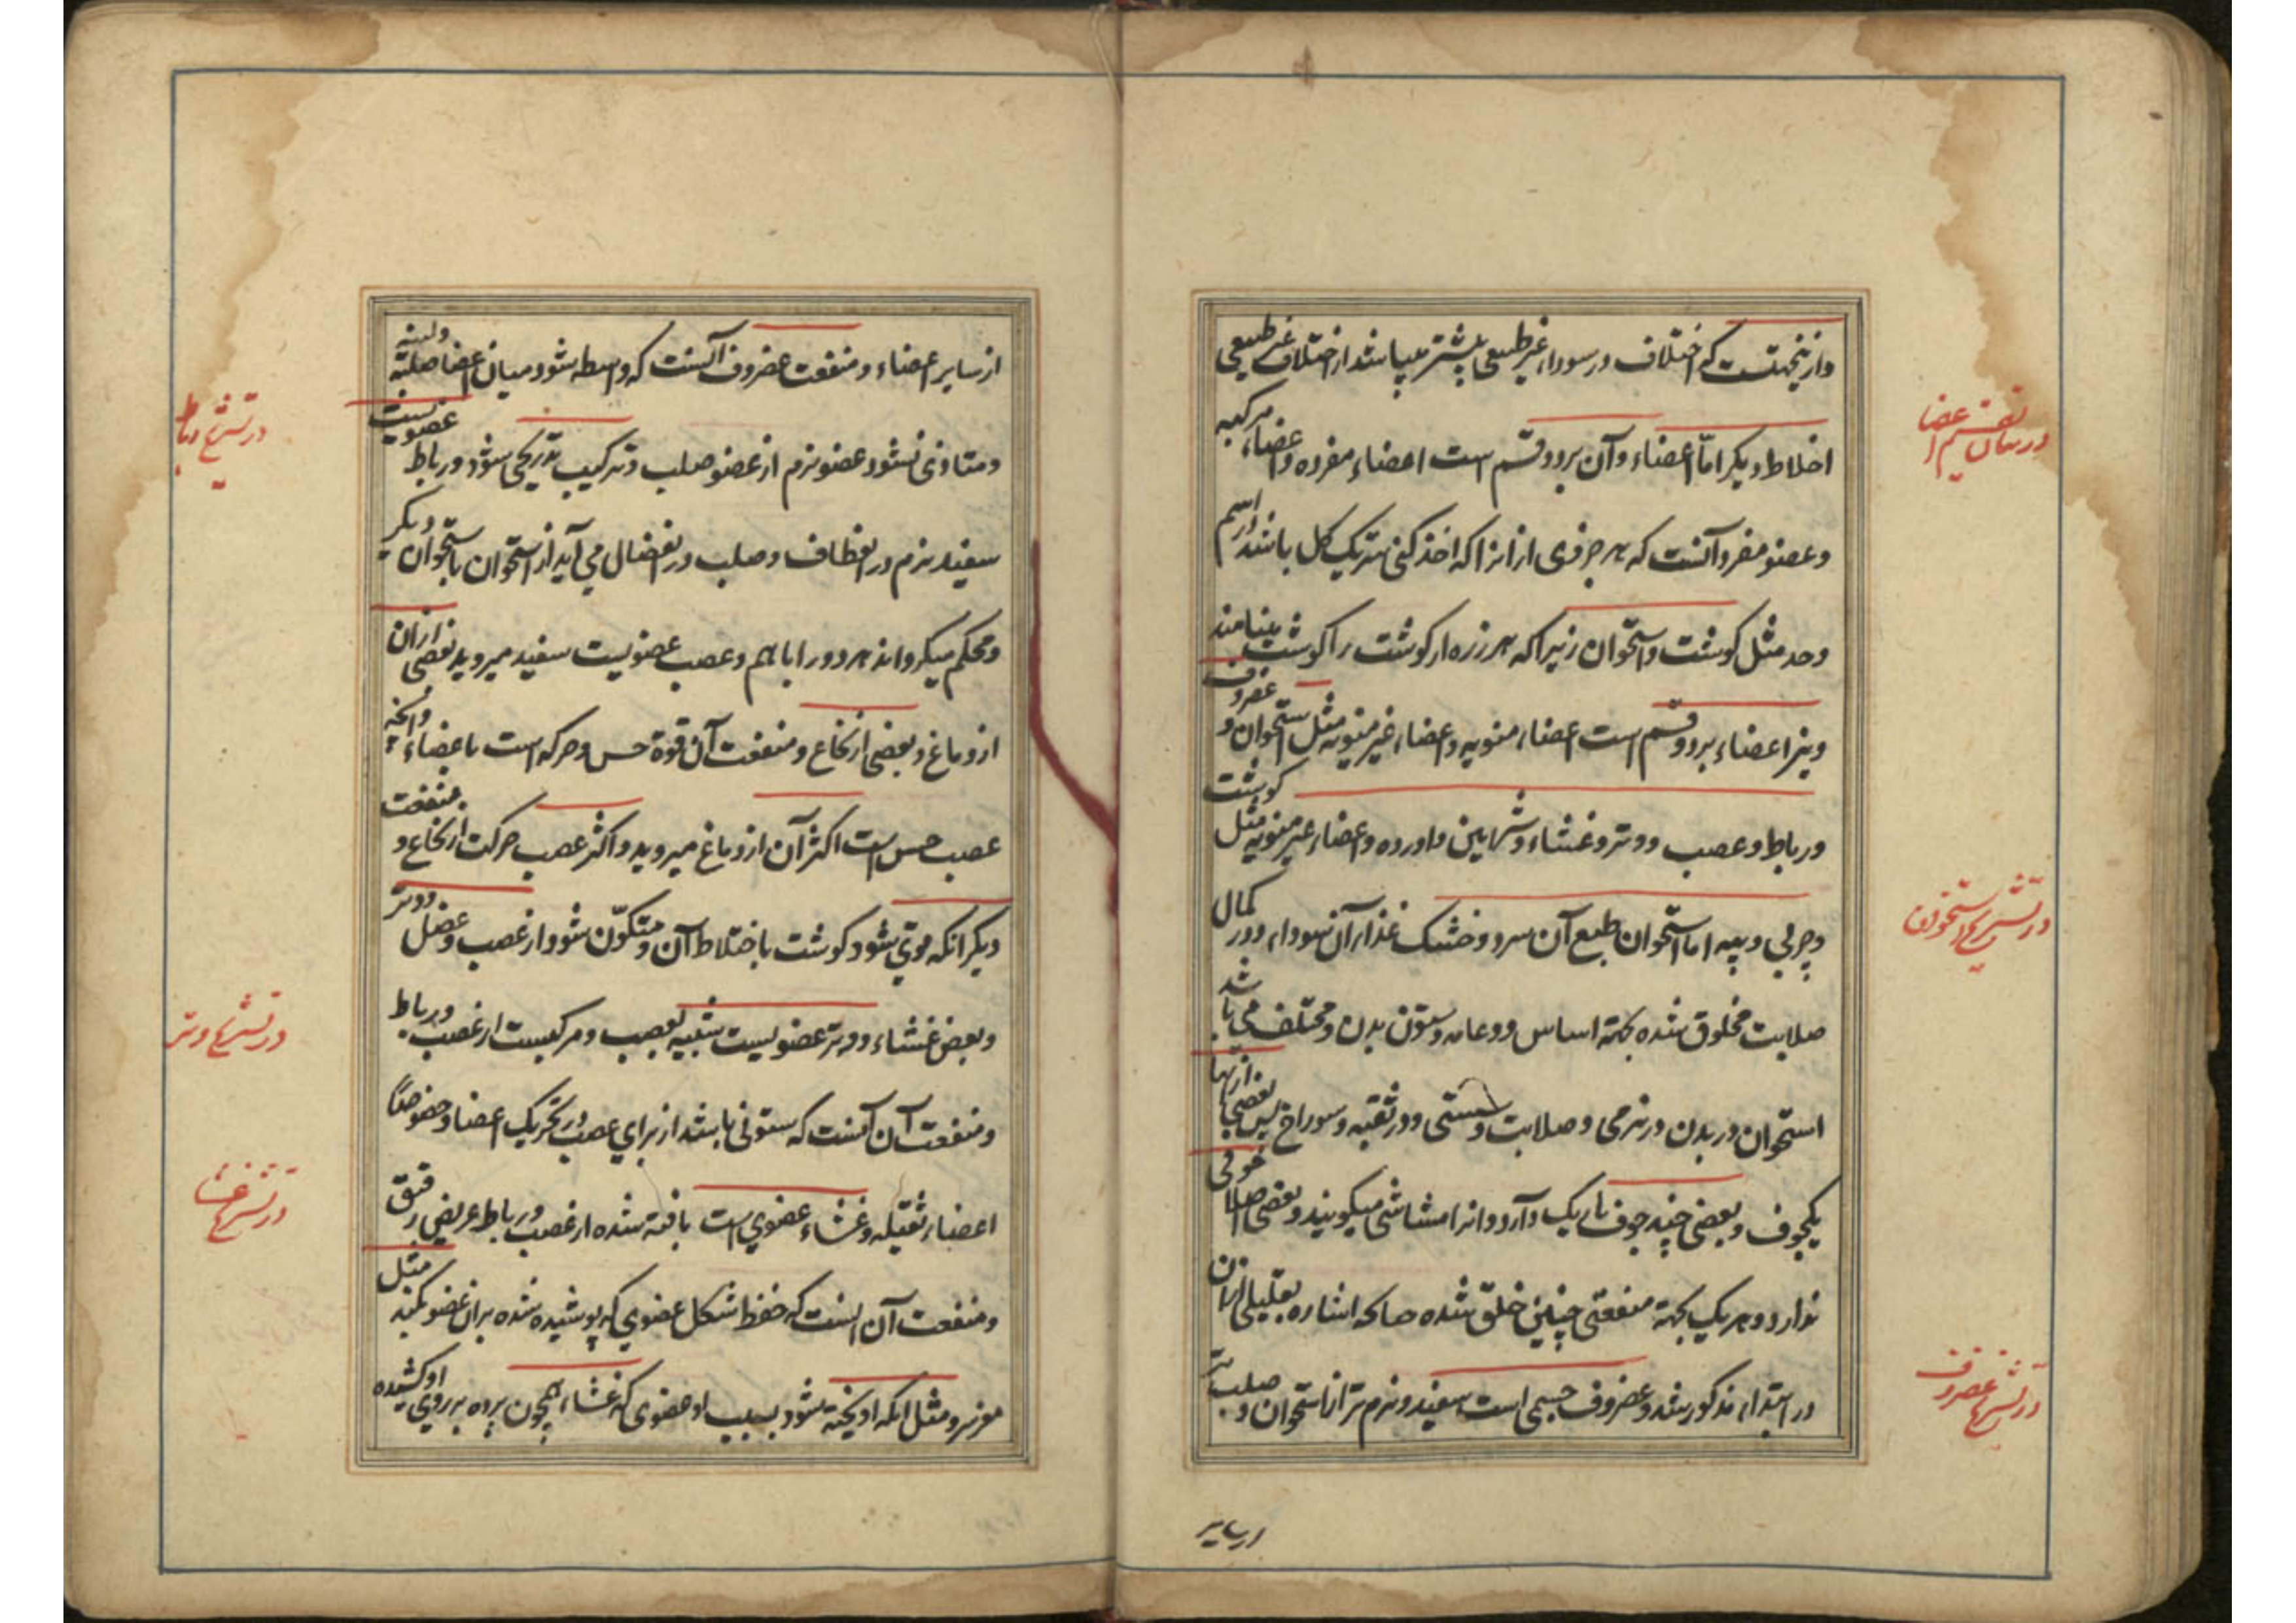 وازینجهتست که اختلاف در سوداء غیر طبیعی بیشتر میباشد از اختلاف غیر طبیعی
اخلاط دیگر امّا اعضاء وآن بر دو قسم است اعضاء مفرده و اعضاء مرکبه
وعضو مفرد آنست که هر جزوی از انرا که اخذ کنی شریک کل باشد در اسم
وحد مثل کوشت و استخوان زیرا که هر ذره از کوشت را کوشت مینامند
ونیز اعضاء بر دو قسم است اعضاء منویه و اعضاء غیر منویه مثل استخوان و غضروف
ورباط وعصب ووتر وغشاء وشرایین واورده واعضاء غیر منویه مثل کوشت
وچربی وپیه اما استخوان طبع آن سرد وخشک غذاء آن سوداء ودر کمال
صلابت مخلوق شده بجهة اساس ودعامه وستون بدن ومختلف می باشد
استخوان در بدن در نرمی وصلابت وسستی ودر ثقبه وسوراخ پس بعضی ازینها
یکجوف وبعضی چند جوف باریک دارد وانرا مشاشی میکویند وبعضی اصلا جوفی
ندارد وهر یک بجهة منفعتی چنین خلق شده چنانکه اشاره بقلیلی ازان
در ابتداء مذکور شد وغضروف جسمی است سفید ونرم تر از استخوان وصلب تر
از سایر
در بیان تقسیم اعضا
در تشریح استخوان
در تشریح غضروف
از سایر اعضاء ومنفعت غضروف آنست که واسطه شود میان اعضا صلبة ولینة
ومتاذی نشود عضو نرم از عضو صلب وترکیب بتدریجی شود ورباط عضویست
سفید نرم در انعطاف وصلب در انفصال می آید از استخوان باستخوان دیگر
ومحکم میکرداند هر دو را با هم وعصب عضویست سفید میروید بعضی ازان
از دماغ وبعضی از نخاع ومنفعت آن قوة حس وحرکه است باعضاء وانچه
عصب حس است اکثر آن از دماغ میروید واکثر عصب حرکت از نخاع و منفعت
دیکر انکه قوی شود کوشت باختلاط آن ومتکوّن شود از عصب وعضل ووتر
وبعض غشاء ووتر عضویست شبیه بعصب ومرکبست از عصب ورباط
ومنفعت آن آنست که ستونی باشد از برای عصب در تحریک اعضا وخصوصاً
اعضاء ثقیله وغشاء عضوی است بافته شده از عصب ورباط عریضی رقیق
ومنفعت آن آنست که حفظ شکل عضوی که پوشیده شده بران عضو بکند مثل
ومثل آنکه اویخته شود بسبب او عضوی که غشاء همچون پرده بر روی او کشیده
در تشریح رباط
در تشریح وتر
در تشریح غشا